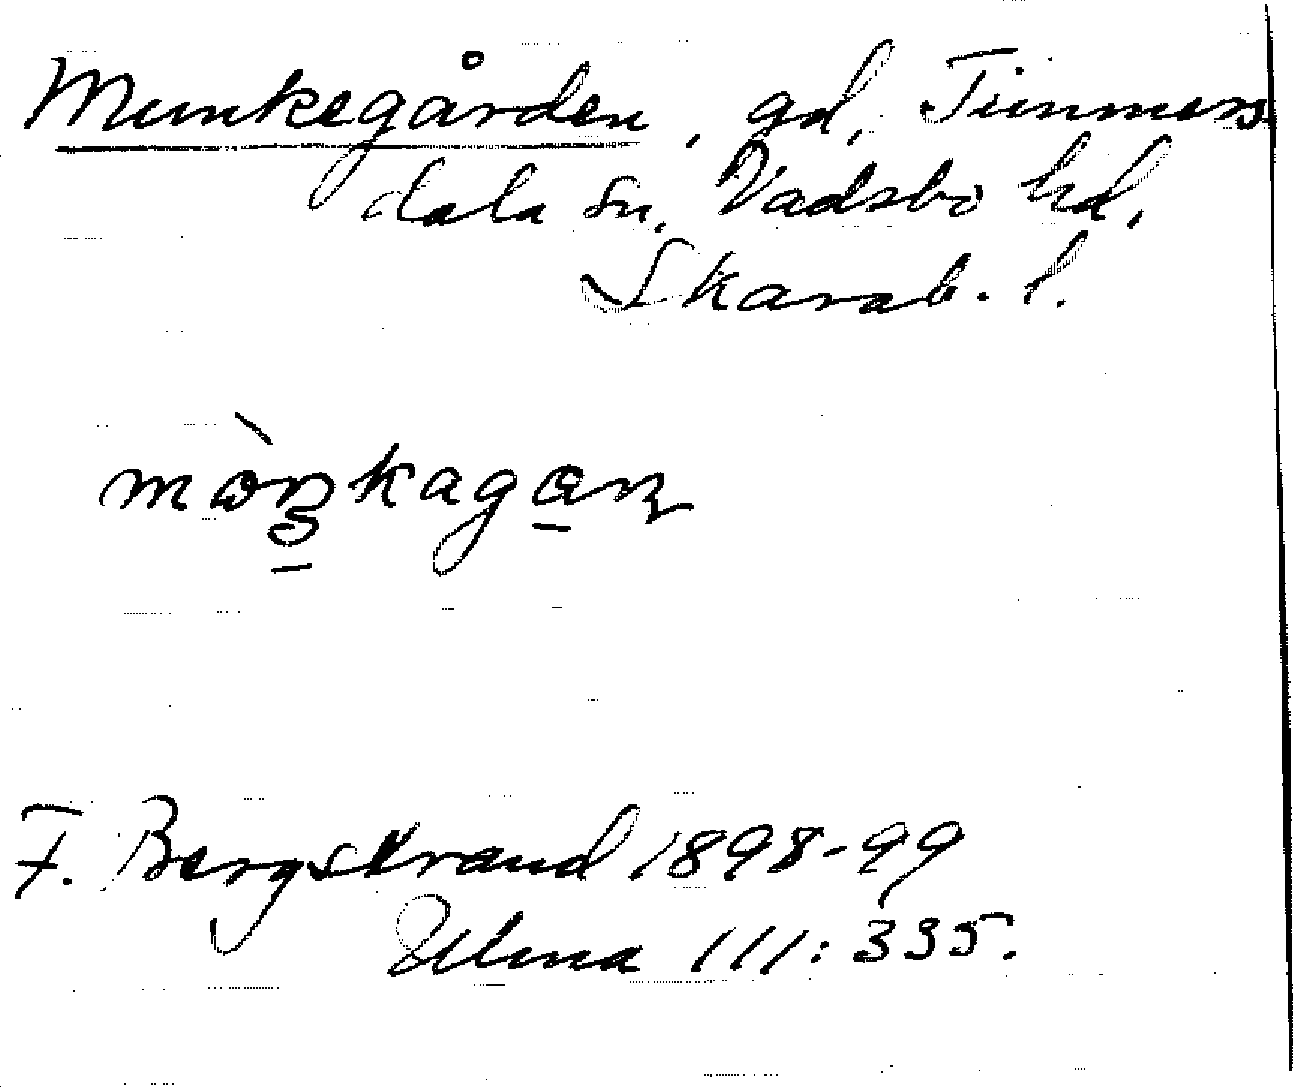 Munkegården, gd, Timmers
dala sn, Vadsbo hd,
Skarab. l.
mòŋkagan
F. Bergstrand 1898-99
Ulma 111:335.